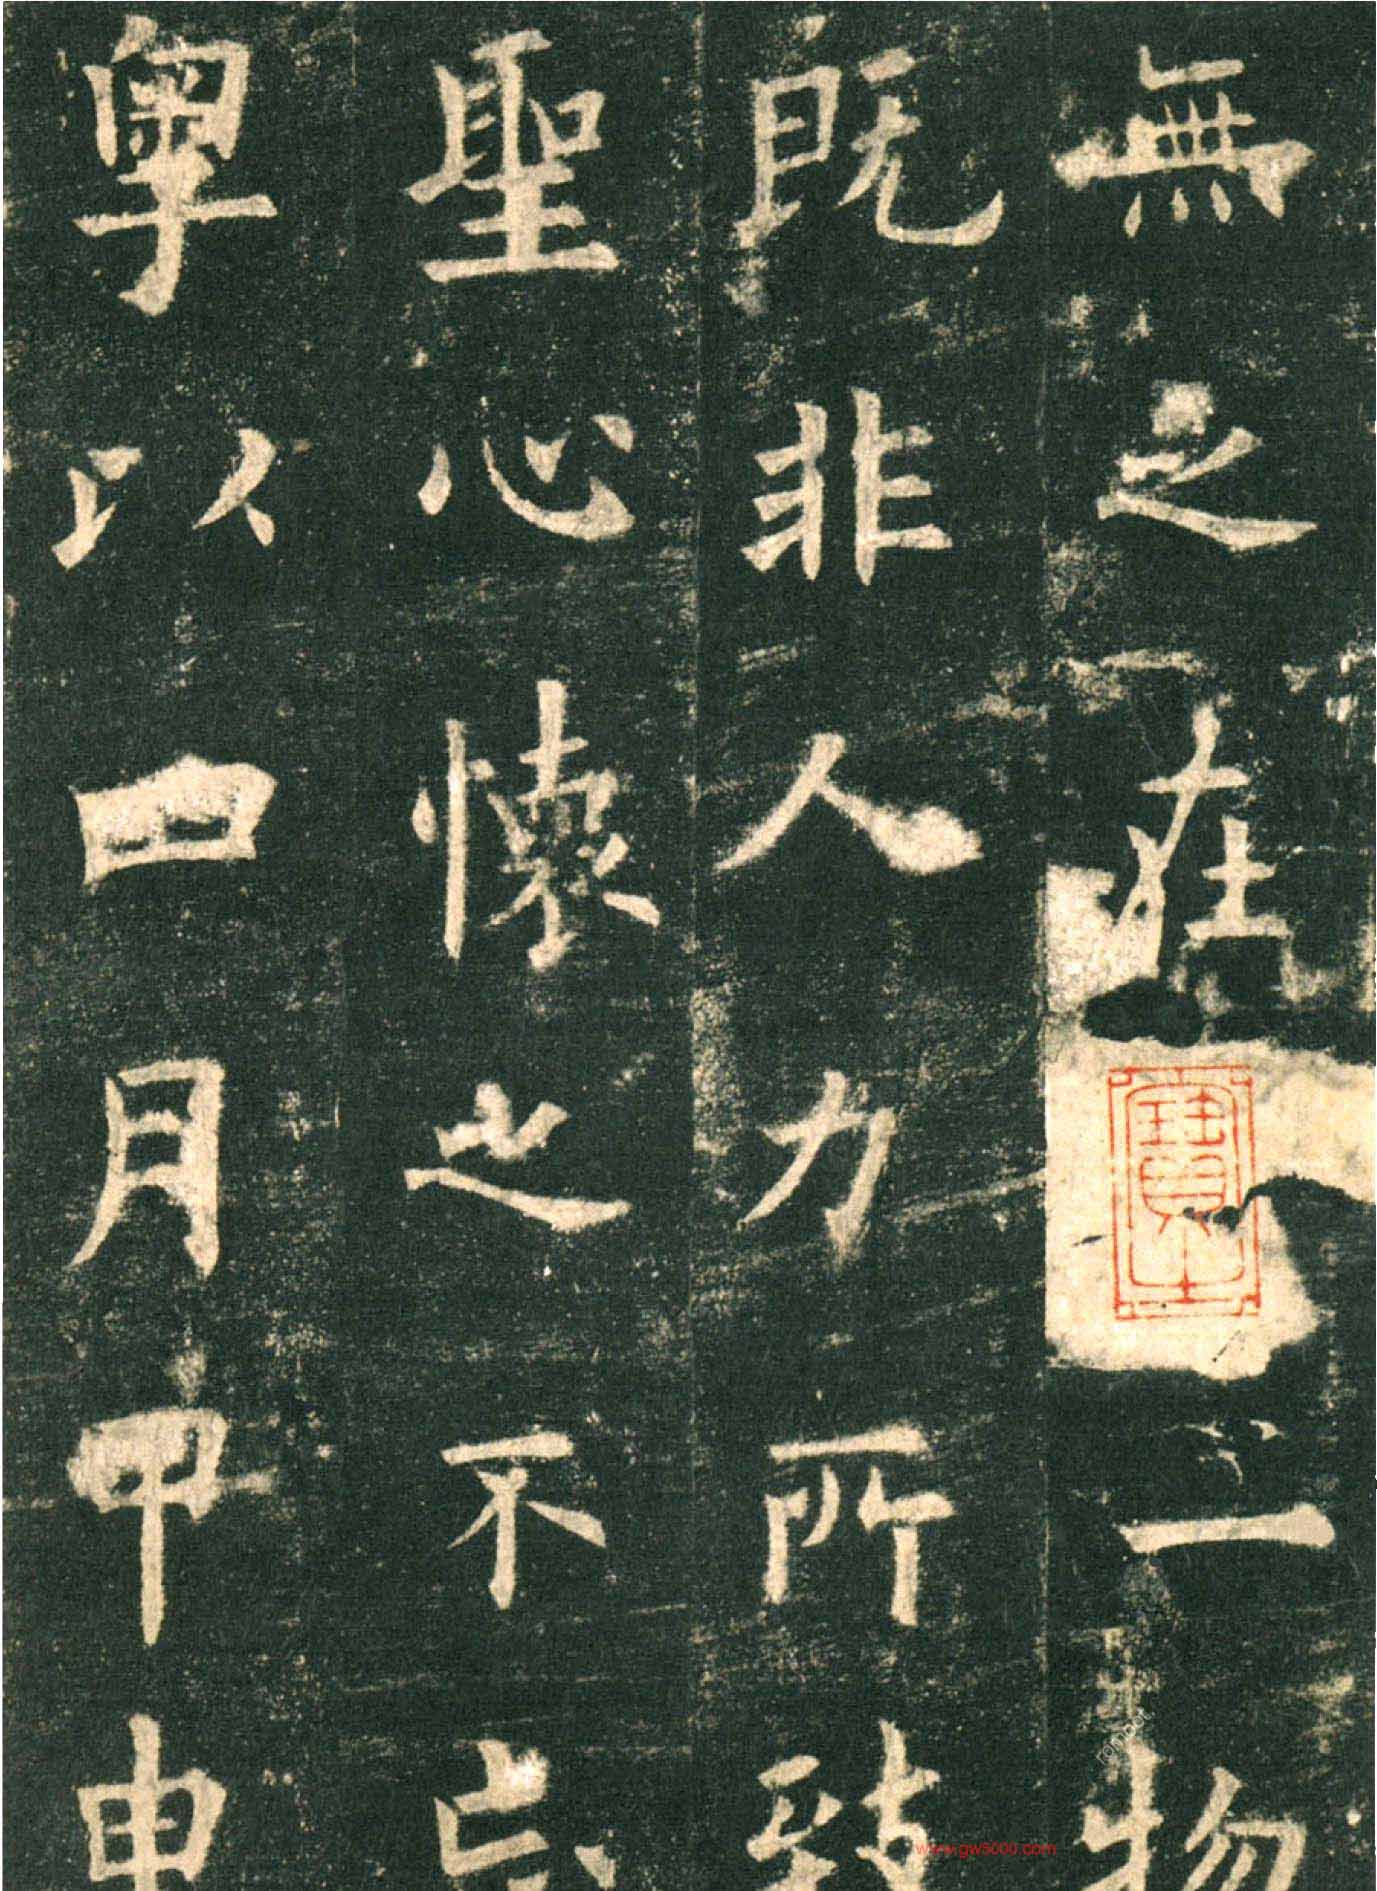 無之在一物
既非人力所致
聖心懷之不忘
粵以四月甲申
www.gw5000.com